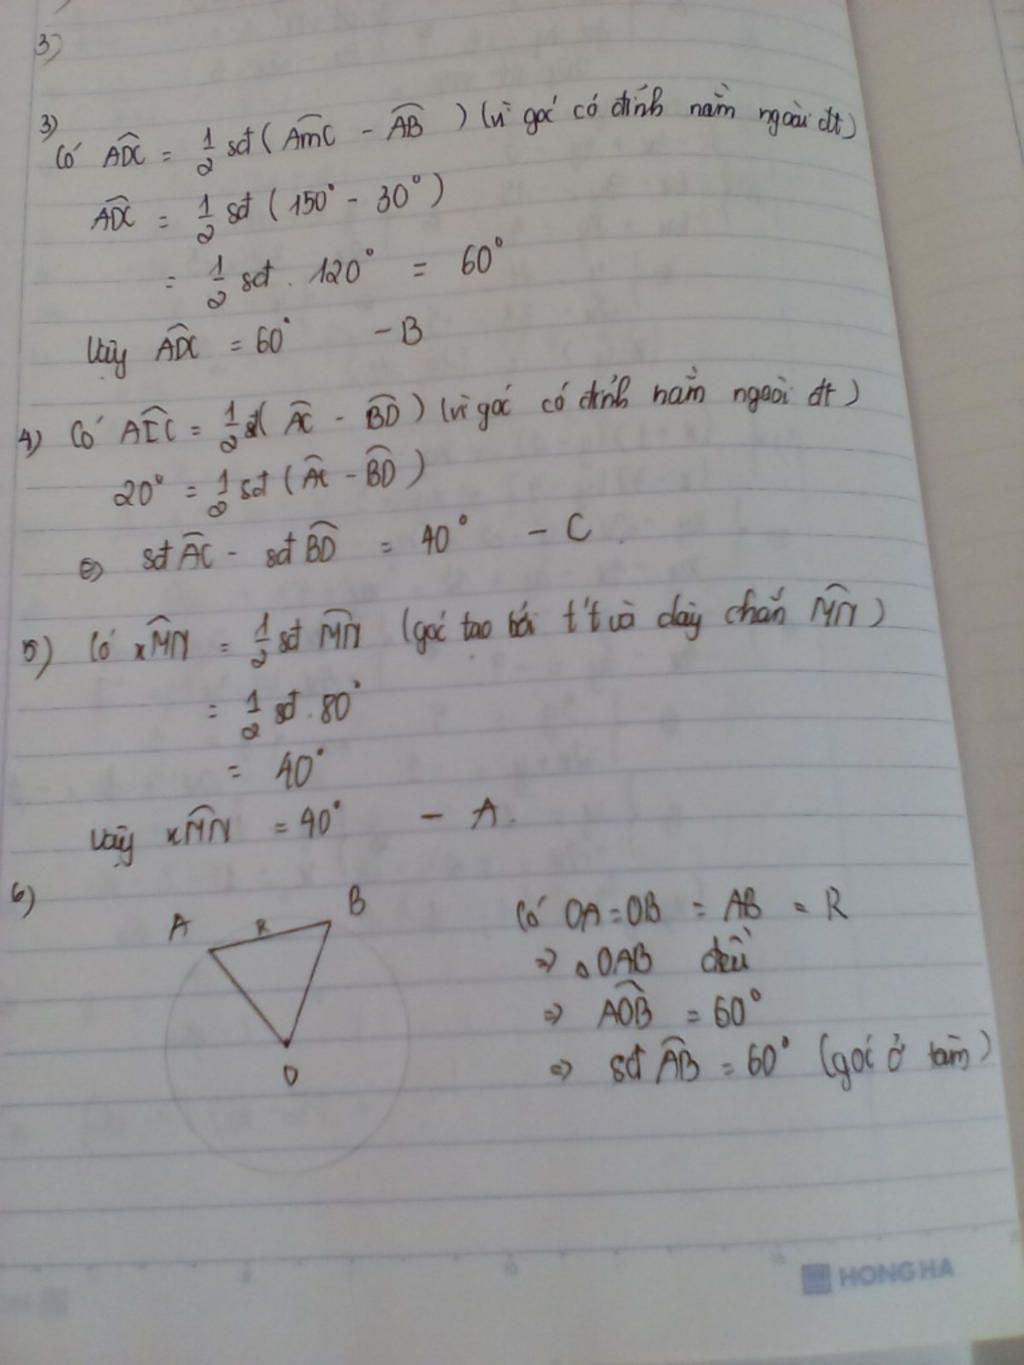 3)
3)
Có ADC = 1/2 sđ (AmC - AB) (vì góc có đỉnh nằm ngoài đt)
ADC = 1/2 sđ (150° - 30°)
= 1/2 sđ . 120° = 60°
Vậy ADC = 60° - B
4) Có AIC = 1/2 sđ (AC - BD) (vì góc có đỉnh nằm ngoài đt)
20° = 1/2 sđ (AC - BD)
⇔ sđ AC - sđ BD = 40° - C
5) Có xMN = 1/2 sđ MN (góc tạo bởi t't và dây chắn MN)
= 1/2 sđ . 80°
= 40°
Vậy xMN = 40° - A.
6)
A R B
O
Có OA = OB = AB = R
⇒ △OAB đều
⇒ AOB = 60°
⇒ sđ AB = 60° (góc ở tâm)
HONG HA